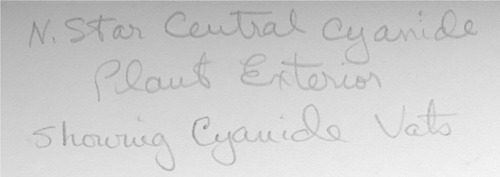 N. Star Central Cyanide
Plant Exterior
Showing Cyanide Vats